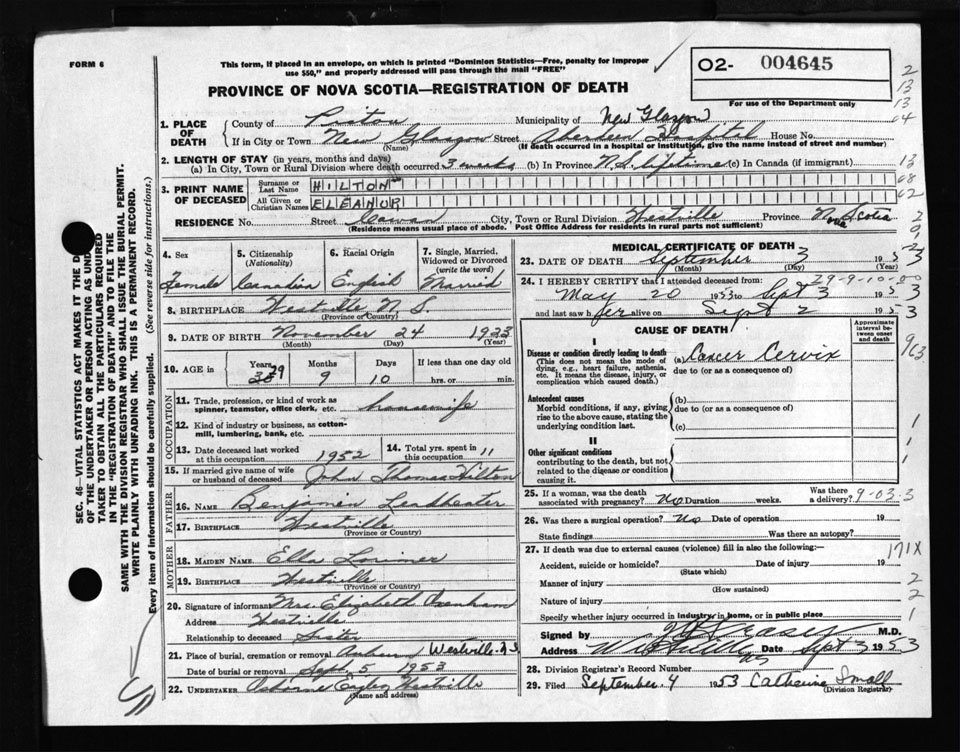 FORM 6
This form, if placed in an envelope, on which is printed "Dominion Statistics—Free, penalty for improper
use $50," and properly addressed will pass through the mail "FREE"
PROVINCE OF NOVA SCOTIA—REGISTRATION OF DEATH
O2- 004645
For use of the Department only
1. PLACE OF DEATH
County of Pictou Municipality of New Glasgow
If in City or Town New Glasgow Street Aberdeen Hospital House No.
(Name) (If death occurred in a hospital or institution, give the name instead of street and number)
2. LENGTH OF STAY (in years, months and days)
(a) In City, Town or Rural Division where death occurred 3 weeks (b) In Province N.S. lifetime (c) In Canada (if immigrant)
3. PRINT NAME OF DECEASED
Surname or Last Name HILTON
All Given or Christian Names ELEANOR
RESIDENCE No. Street Cowan City, Town or Rural Division Westville Province Nova Scotia
(Residence means usual place of abode. Post Office Address for residents in rural parts not sufficient)
4. Sex
Female
5. Citizenship (Nationality)
Canadian
6. Racial Origin
English
7. Single, Married, Widowed or Divorced (write the word)
Married
8. BIRTHPLACE Westville N S.
(Province or Country)
9. DATE OF BIRTH November 24 1923
(Month) (Day) (Year)
10. AGE in Years Months Days If less than one day old
29 9 10 hrs. or min.
OCCUPATION
11. Trade, profession, or kind of work as
spinner, teamster, office clerk, etc. housewife
12. Kind of industry or business, as cotton-
mill, lumbering, bank, etc.
13. Date deceased last worked
at this occupation 1952
14. Total yrs. spent in
this occupation 11
15. If married give name of wife
or husband of deceased John Thomas Hilton
FATHER
16. NAME Benjimen Leadbeater
17. BIRTHPLACE Westville
(Province or Country)
MOTHER
18. MAIDEN NAME Ella Lorimer
19. BIRTHPLACE Westville
(Province or Country)
20. Signature of informant Mrs. Elizabeth Oxenham
Address Westville
Relationship to deceased Sister
21. Place of burial, cremation or removal Auburn Westville. N S
Date of burial or removal Sept 5 1953
22. UNDERTAKER Osborne Westville
(Name and address)
MEDICAL CERTIFICATE OF DEATH
23. DATE OF DEATH September 3 1953
(Month) (Day) (Year)
29-9-10-00
24. I HEREBY CERTIFY that I attended deceased from:
May 20 1953 to Sept 3 1953
and last saw her alive on Sept 2 1953
CAUSE OF DEATH
Approximate interval between onset and death
I
Disease or condition directly leading to death (a) Cancer Cervix
(This does not mean the mode of due to (or as a consequence of)
dying, e.g., heart failure, asthenia,
etc. It means the disease, injury, or
complication which caused death.)
Antecedent causes (b)
Morbid conditions, if any, giving due to (or as a consequence of)
rise to the above cause, stating the
underlying condition last. (c)
II
Other significant conditions
contributing to the death, but not
related to the disease or condition
causing it.
25. If a woman, was the death
associated with pregnancy? No Duration weeks. Was there a delivery? 9-03-3
26. Was there a surgical operation? No Date of operation 19
State findings Was there an autopsy?
27. If death was due to external causes (violence) fill in also the following:— 171X
Accident, suicide or homicide? Date of injury 19
(State which)
Manner of injury
(How sustained)
Nature of injury
Specify whether injury occurred in industry, in home, or in public place
Signed by M.D.
Address Date Sept 3 1953
28. Division Registrar's Record Number
29. Filed September 4 1953 Catherine Small
(Division Registrar)
SEC. 46—VITAL STATISTICS ACT MAKES IT THE D
OF THE UNDERTAKER OR PERSON ACTING AS UND
TAKER TO OBTAIN ALL THE PARTICULARS REQUIRED
IN THE "REGISTRATION OF DEATH" AND TO FILE THE
SAME WITH THE DIVISION REGISTRAR WHO SHALL ISSUE THE BURIAL PERMIT.
WRITE PLAINLY WITH UNFADING INK. THIS IS A PERMANENT RECORD.
Every item of information should be carefully supplied. (See reverse side for instructions.)
2
13
13
64
13
68
62
2
9
2
963
1
1
1
2
2
1